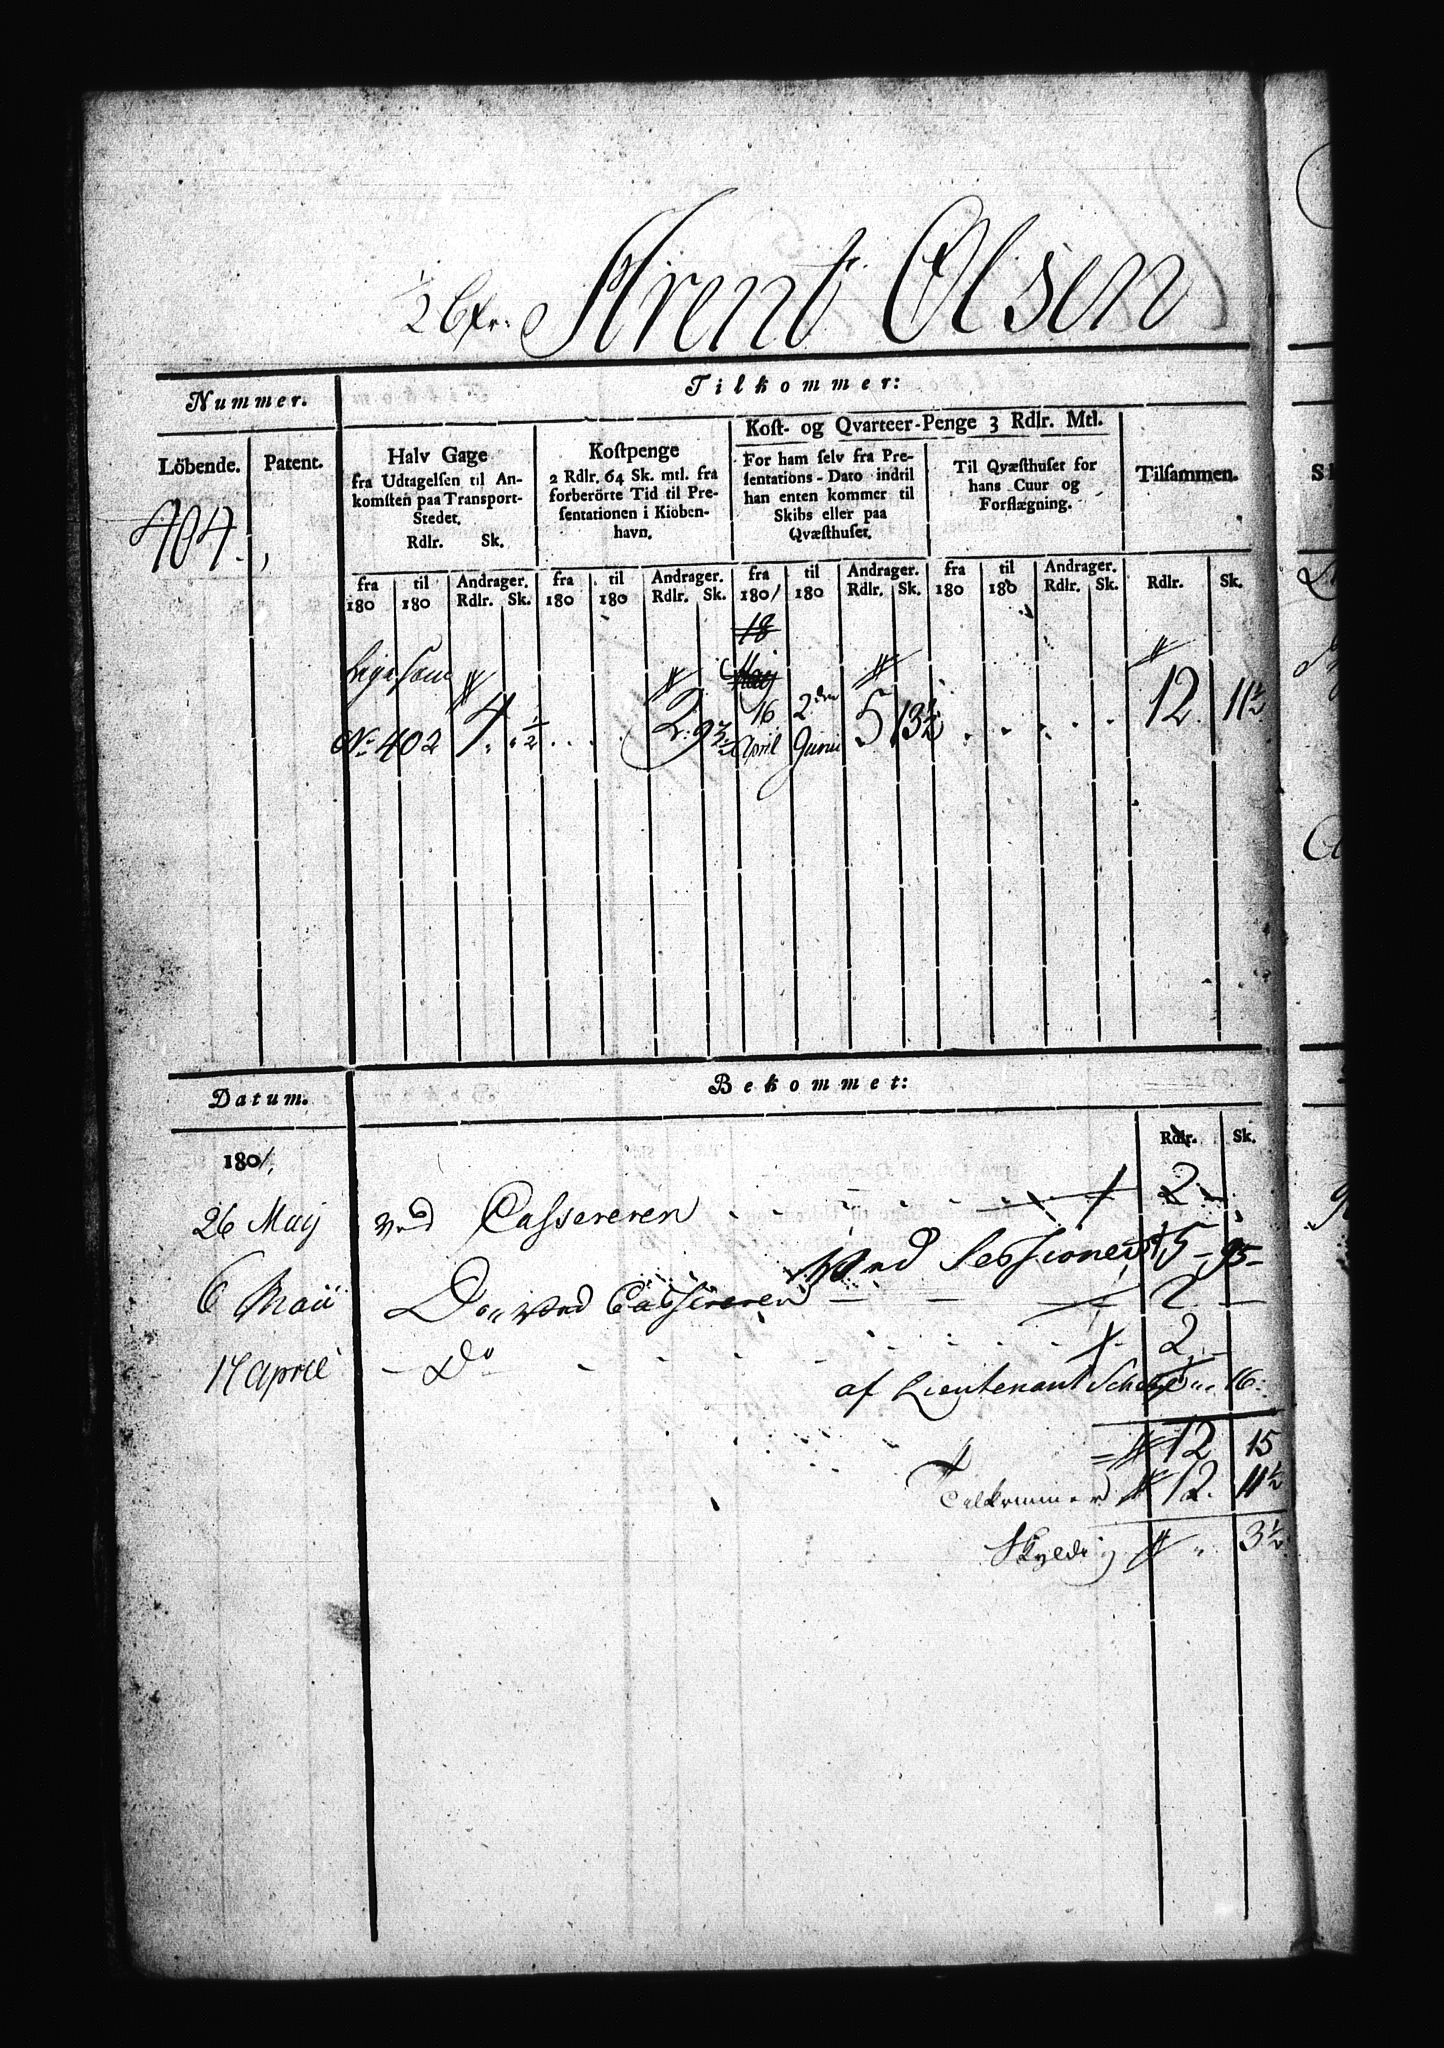 ½ bfr: Arent Olsen
Nummer. Tilkommer:
Löbende. Patent.
Halv Gage
fra Udtagelsen til An-
komsten paa Transport-
Stedet.
Rdlr. Sk.
Kostpenge
2 Rdlr. 64 Sk. mtl. fra
forberörte Tid til Pre-
sentationen i Kiöben-
havn.
Kost- og Qvarteer-Penge 3 Rdlr. Mtl.
For ham selv fra Pre-
sentations-Dato indtil
han enten kommer til
Skibs eller paa
Qvæsthuset.
Til Qvæsthuset for
hans Cuur og
Forflægning.
Tilsammen.
404.
fra til Andrager. fra til Andrager. fra til Andrager. fra til Andrager.
180 180 Rdlr. Sk. 180 180 Rdlr. Sk. 1801 180 Rdlr. Sk. 180 180 Rdlr. Sk. Rdlr. Sk.
18
Maij
ligesom
No. 402 4 ½ 2 16 April 2den Junii 5 13½ 12. 11½
Datum. Bekommet:
1801. Rdlr. Sk.
26 Maij ved Cassereren 2
ved Sessionen 5 95
6 Maii Do ved Cassereren 2
17 April Do 2
af Lieutenant 16
12 15
Tilkommer 12. 11½
Skyldig 3½